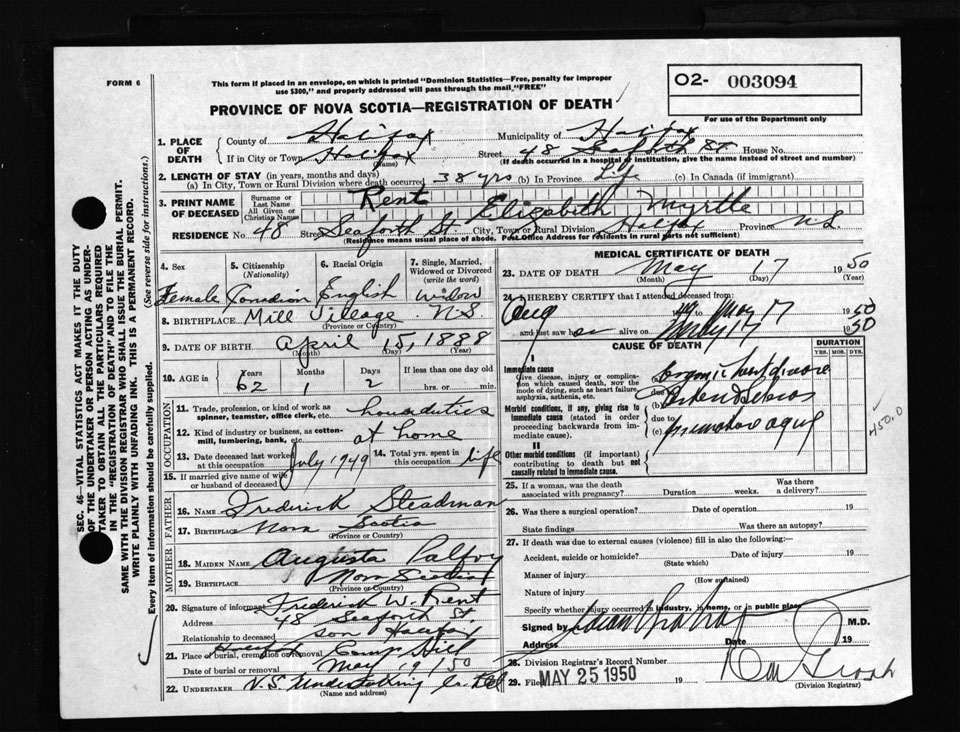 FORM 6
This form if placed in an envelope, on which is printed "Dominion Statistics—Free, penalty for improper
use $300," and properly addressed will pass through the mail "FREE"
O2- 003094
For use of the Department only
PROVINCE OF NOVA SCOTIA—REGISTRATION OF DEATH
1. PLACE OF DEATH
County of Halifax Municipality of Halifax
If in City or Town Halifax (Name) Street 48 Seaforth St. House No.
(If death occurred in a hospital or institution, give the name instead of street and number)
2. LENGTH OF STAY (in years, months and days)
(a) In City, Town or Rural Division where death occurred 38 yrs (b) In Province Life (c) In Canada (if immigrant)
3. PRINT NAME OF DECEASED
Surname or Last Name Kent
All Given or Christian Names Elizabeth Myrtle
RESIDENCE No. 48 Street Seaforth St. City, Town or Rural Division Halifax Province N.S.
(Residence means usual place of abode. Post Office Address for residents in rural parts not sufficient)
4. Sex 5. Citizenship (Nationality) 6. Racial Origin 7. Single, Married, Widowed or Divorced (write the word)
Female Canadian English Widow
8. BIRTHPLACE Mill Village N.S.
(Province or Country)
9. DATE OF BIRTH April 15, 1888
(Month) (Day) (Year)
10. AGE in Years Months Days If less than one day old
62 1 2 hrs. or min.
OCCUPATION
11. Trade, profession, or kind of work as spinner, teamster, office clerk, etc. houseduties
12. Kind of industry or business, as cotton-mill, lumbering, bank, etc. at home
13. Date deceased last worked at this occupation July 1949 14. Total yrs. spent in this occupation life
15. If married give name of wife or husband of deceased
FATHER
16. NAME Fredrick Steadman
17. BIRTHPLACE Nova Scotia
(Province or Country)
MOTHER
18. MAIDEN NAME Augusta
19. BIRTHPLACE Nova Scotia
(Province or Country)
20. Signature of informant Frederick W. Kent
Address 48 Seaforth St.
Relationship to deceased son Halifax
21. Place of burial, cremation or removal Halifax Camp Hill
Date of burial or removal May 19/50
22. UNDERTAKER N.S. Undertaking Co. Ltd
(Name and address)
MEDICAL CERTIFICATE OF DEATH
23. DATE OF DEATH May 17 1950
(Month) (Day) (Year)
24. I HEREBY CERTIFY that I attended deceased from
Aug 49 to May 17 1950
and last saw her alive on May 17 1950
CAUSE OF DEATH
DURATION
YRS. MOS. DYS.
I
Immediate cause
Give disease, injury or complication which caused death, NOT the mode of dying, such as heart failure, asphyxia, asthenia, etc.
(a) organic heart disease
due to
Morbid conditions, if any, giving rise to immediate cause (stated in order proceeding backwards from immediate cause).
(b) Arteriosclerosis
due to
(c) premature aging
450.0
II
Other morbid conditions (if important) contributing to death but not causally related to immediate cause.
25. If a woman, was the death associated with pregnancy? Duration weeks. Was there a delivery?
26. Was there a surgical operation? Date of operation 19
State findings Was there an autopsy?
27. If death was due to external causes (violence) fill in also the following:
Accident, suicide or homicide? Date of injury 19
(State which)
Manner of injury
(How sustained)
Nature of injury
Specify whether injury occurred in industry, in home, or in public place
Signed by M.D.
Address Date 19
28. Division Registrar's Record Number
29. Filed MAY 25 1950 19
(Division Registrar)
SEC. 46—VITAL STATISTICS ACT MAKES IT THE DUTY
OF THE UNDERTAKER OR PERSON ACTING AS UNDER-
TAKER TO OBTAIN ALL THE PARTICULARS REQUIRED
IN THE "REGISTRATION OF DEATH" AND TO FILE THE
SAME WITH THE DIVISION REGISTRAR WHO SHALL ISSUE THE BURIAL PERMIT.
WRITE PLAINLY WITH UNFADING INK. THIS IS A PERMANENT RECORD.
Every item of information should be carefully supplied. (See reverse side for instructions.)